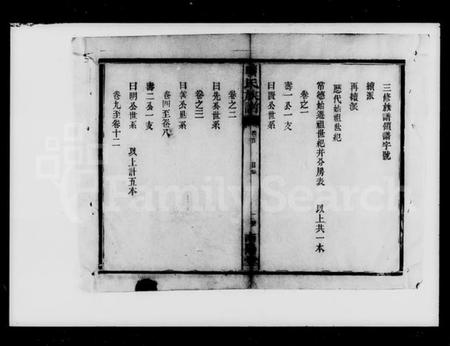 三修族譜領譜字號
續派
再續派
歷代始祖世紀
常德始遷祖世紀并分房表 以上共一本
卷之一
壽一公一支
曰
公世系
氏族譜
卷之二
曰先公世系
卷之三
曰
公世系
卷四至卷八
壽二公一支
曰明公世系 以上計五本
卷九至卷十二
FamilySearch